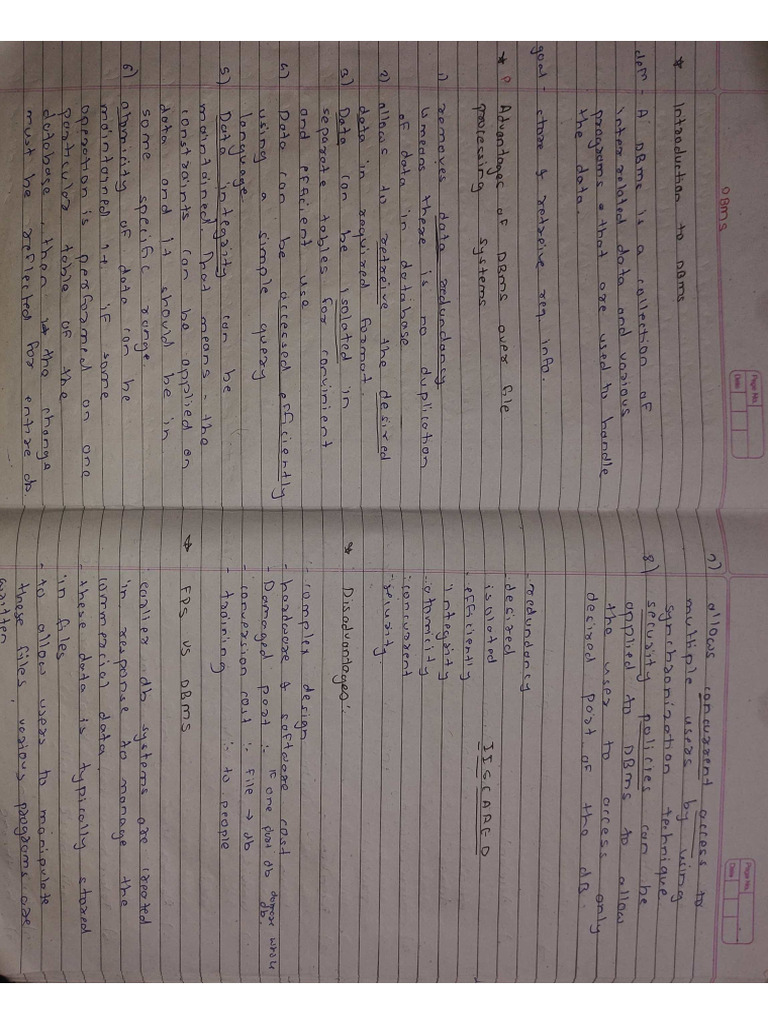 DBMS
Page No.
Date
* Introduction to DBMS
defn - A DBMS is a collection of
interrelated data and various
programs that are used to handle
the data.
goal - store & retreive req. info.
* P. Advantages of DBMS over file
processing systems
1) removes data redundancy
↳ means there is no duplication
of data in database
2) allows to retreive the desired
data in required format.
3) Data can be isolated in
separate tables for convinient
and efficient use
4) Data can be accessed efficiently
using a simple query
language
5) Data integrity can be
maintained. That means - the
constraints can be applied on
data and it should be in
some specific range.
6) atomicity of data can be
maintained i.e. if some
operation is performed on one
particular table of the
database, then the change
must be reflected for entire db.
Page No.
Date
7) allows concurrent access to
multiple users by using
synchronization technique
8) security policies can be
applied to DBMS to allow
the user to access only
desired part of the DB.
- redundancy
- desired
isolated IISCARED
- efficiently
integrity
- atomicity
- concurrent
- security.
* Disadvantages:
- complex design
- hardware & software cost
- Damaged part :- if one part db damage whole
db.
- conversion cost :- file → db
- training :- to people
* FPS vs DBMS
earlier db systems are created
in response to manage the
commercial data
- these data is typically stored
in files
- to allow users to manipulate
these files, various programs are
written